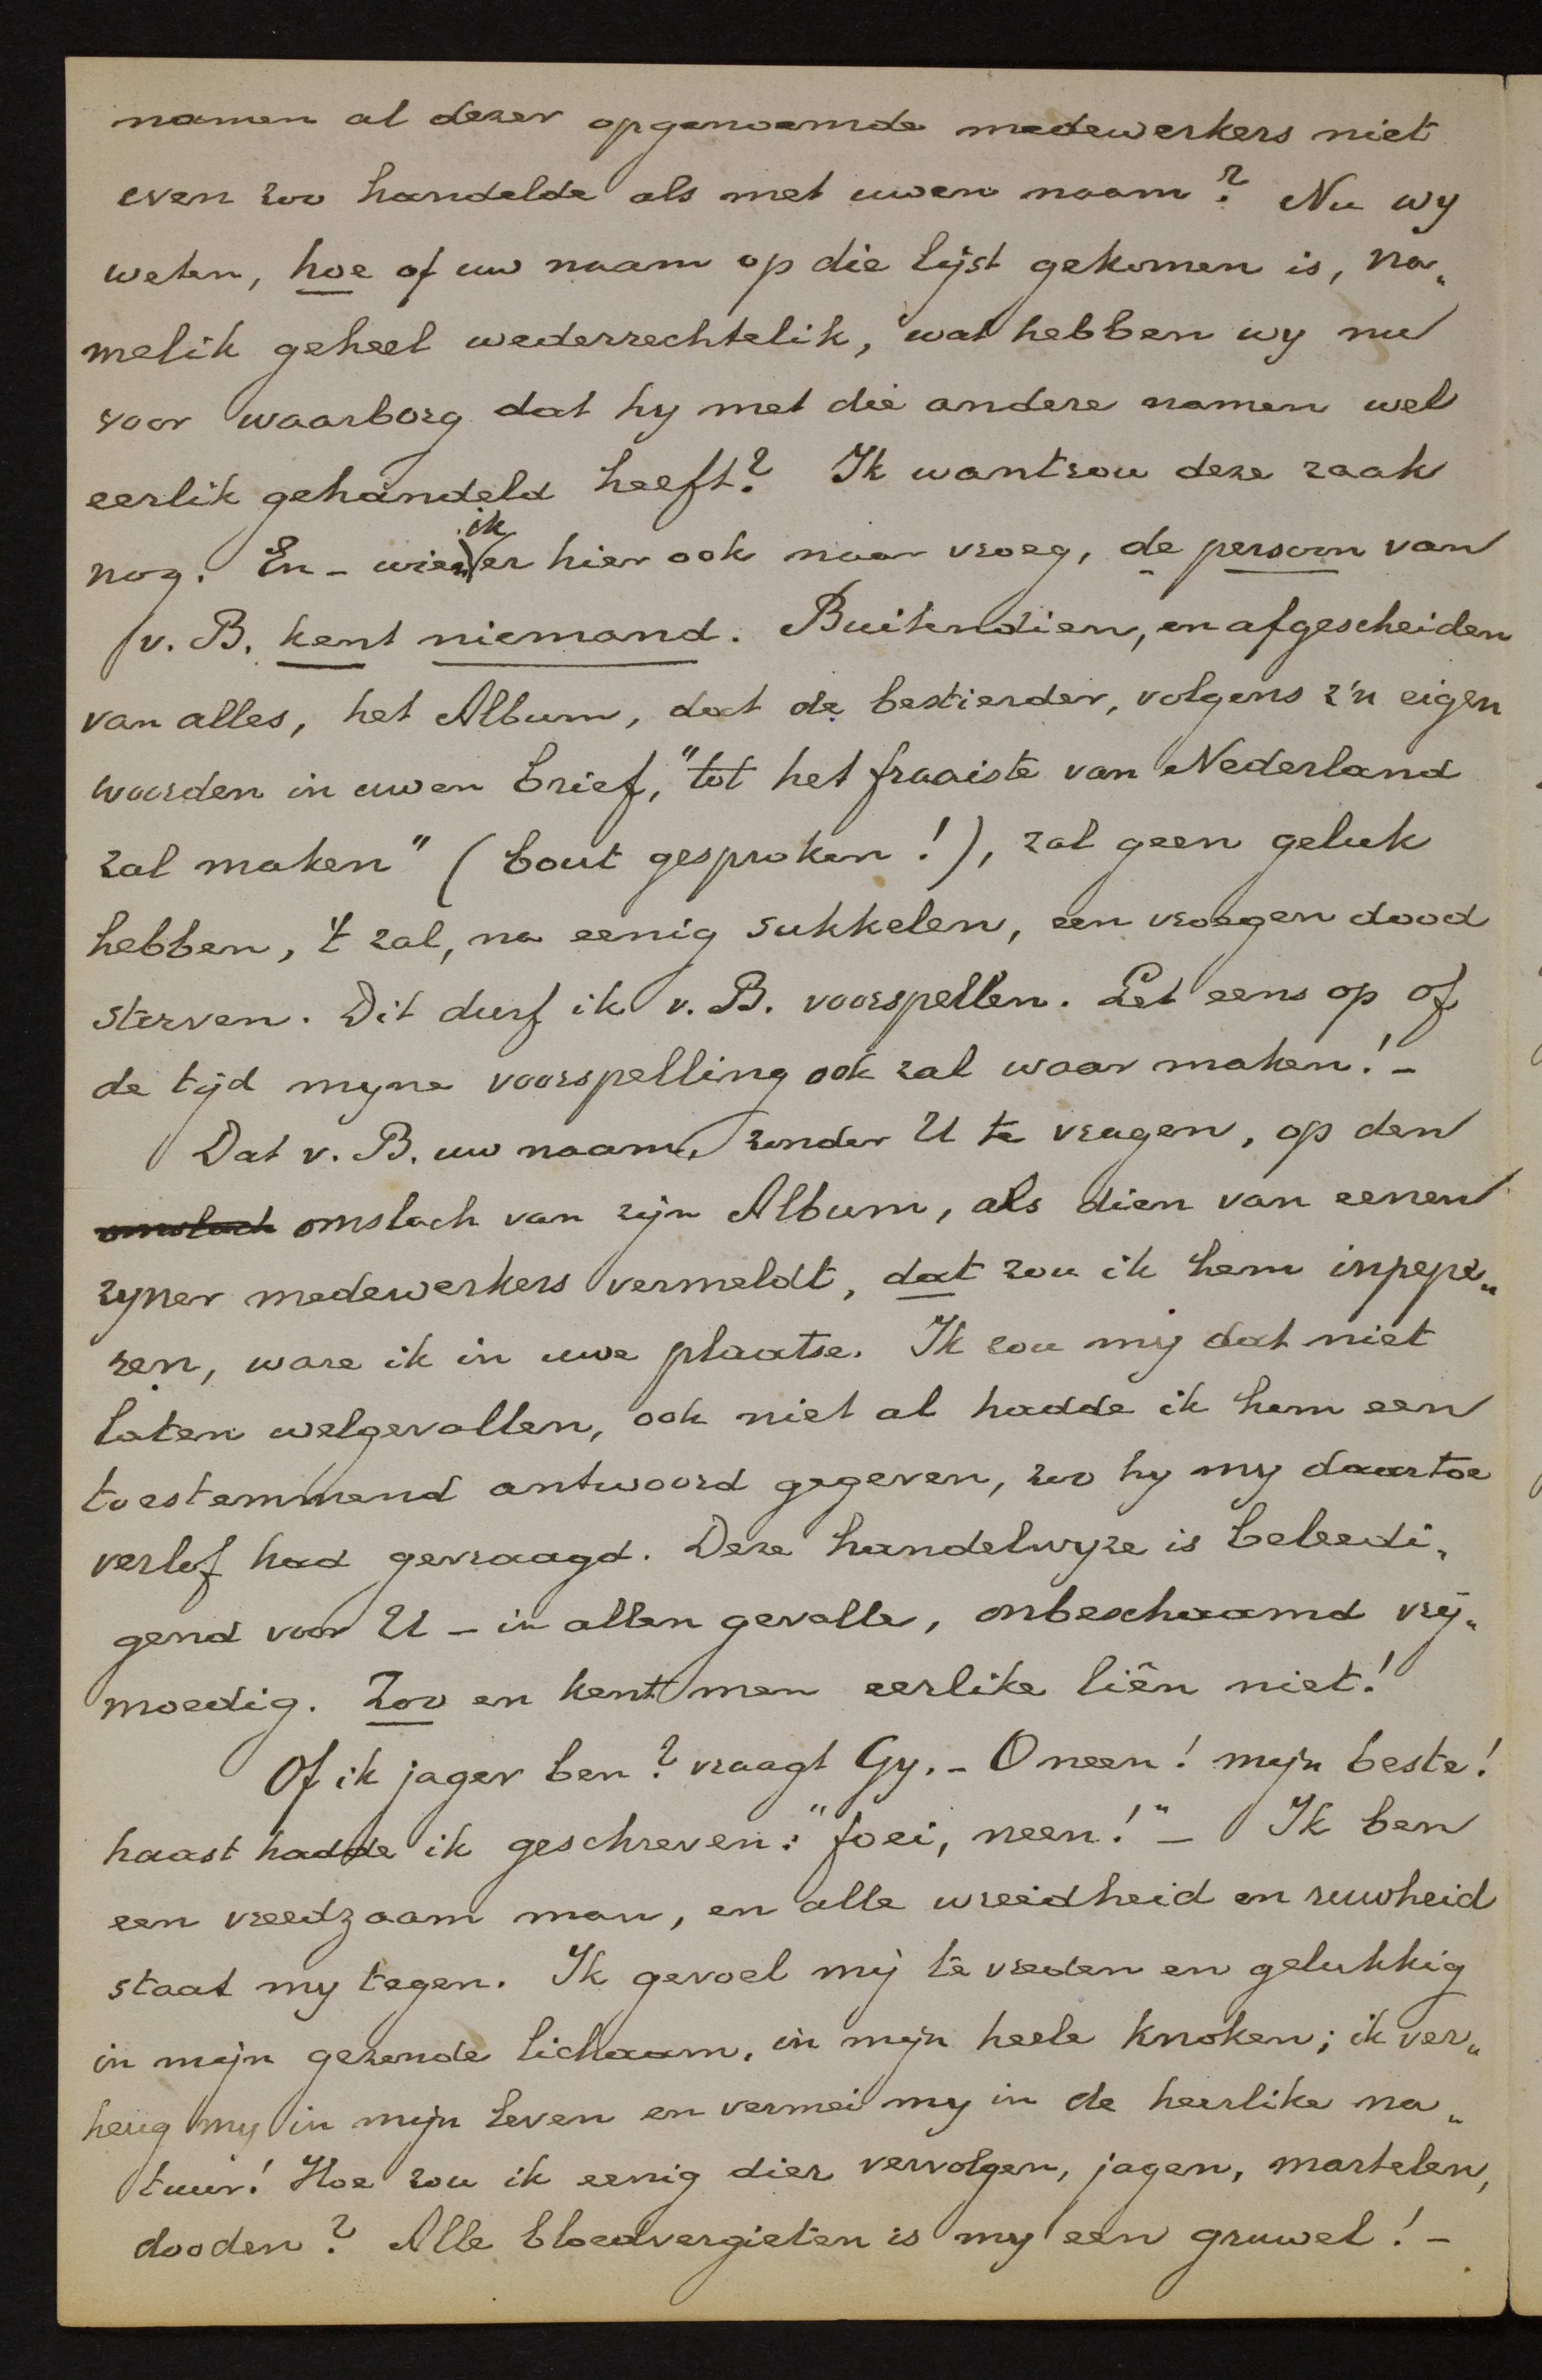 namen al dezer opgenoemde medewerkers niet
even zoo handelde als met uwen naam? Nu wy
weten, hoe of uw naam op die lijst gekomen is, na„
melik geheel wederrechtelik, wat hebben wy nu
voor waarborg dat hy met die andere namen wel
eerlik gehandeld heeft? Ik wantrou deze zaak
nog. En – wien ik er hier ook naar vroeg, de persoon van
v. B. kent niemand. Buitendien, en afgescheiden
van alles, het Album, dat de bestierder, volgens z'n eigen
woorden in uwen brief, "tot het fraaiste van Nederland
zal maken" (bout gesproken!), zal geen geluk
hebben, 't zal, na eenig sukkelen, een vroegen dood
sterven. Dit durf ik v. B. voorspellen. Let eens op of
de tijd myne voorspelling ook zal waar maken! –
Dat v. B. uw naam, zonder U te vragen, op den
omslach omslach van zijn Album, als dien van eenen
zyner medewerkers vermeldt, dat zou ik hem inpepe„
ren, ware ik in uwe plaatse. Ik zou mij dat niet
laten welgevallen, ook niet al hadde ik hem een
toestemmend antwoord gegeven, zoo hy my daartoe
verlof had gevraagd. Deze handelwyze is beleedi„
gend voor U – in allen gevalle, onbeschaamd vrij„
moedig. Zoo en kent men eerlike liên niet!
Of ik jager ben? vraagt Gy. – O neen! mijn beste!
haast hadde ik geschreven: "foei, neen!" – Ik ben
een vreedzaam man, en alle wreidheid en ruwheid
staat my tegen. Ik gevoel mij te vreden en gelukkig
in mijn gezonde lichaam, in mijn heele knoken; ik ver„
heug my in mijn leven en vermei my in de heerlike na„
tuur! Hoe zou ik eenig dier vervolgen, jagen, martelen,
dooden? Alle bloedvergieten is my een gruwel! –